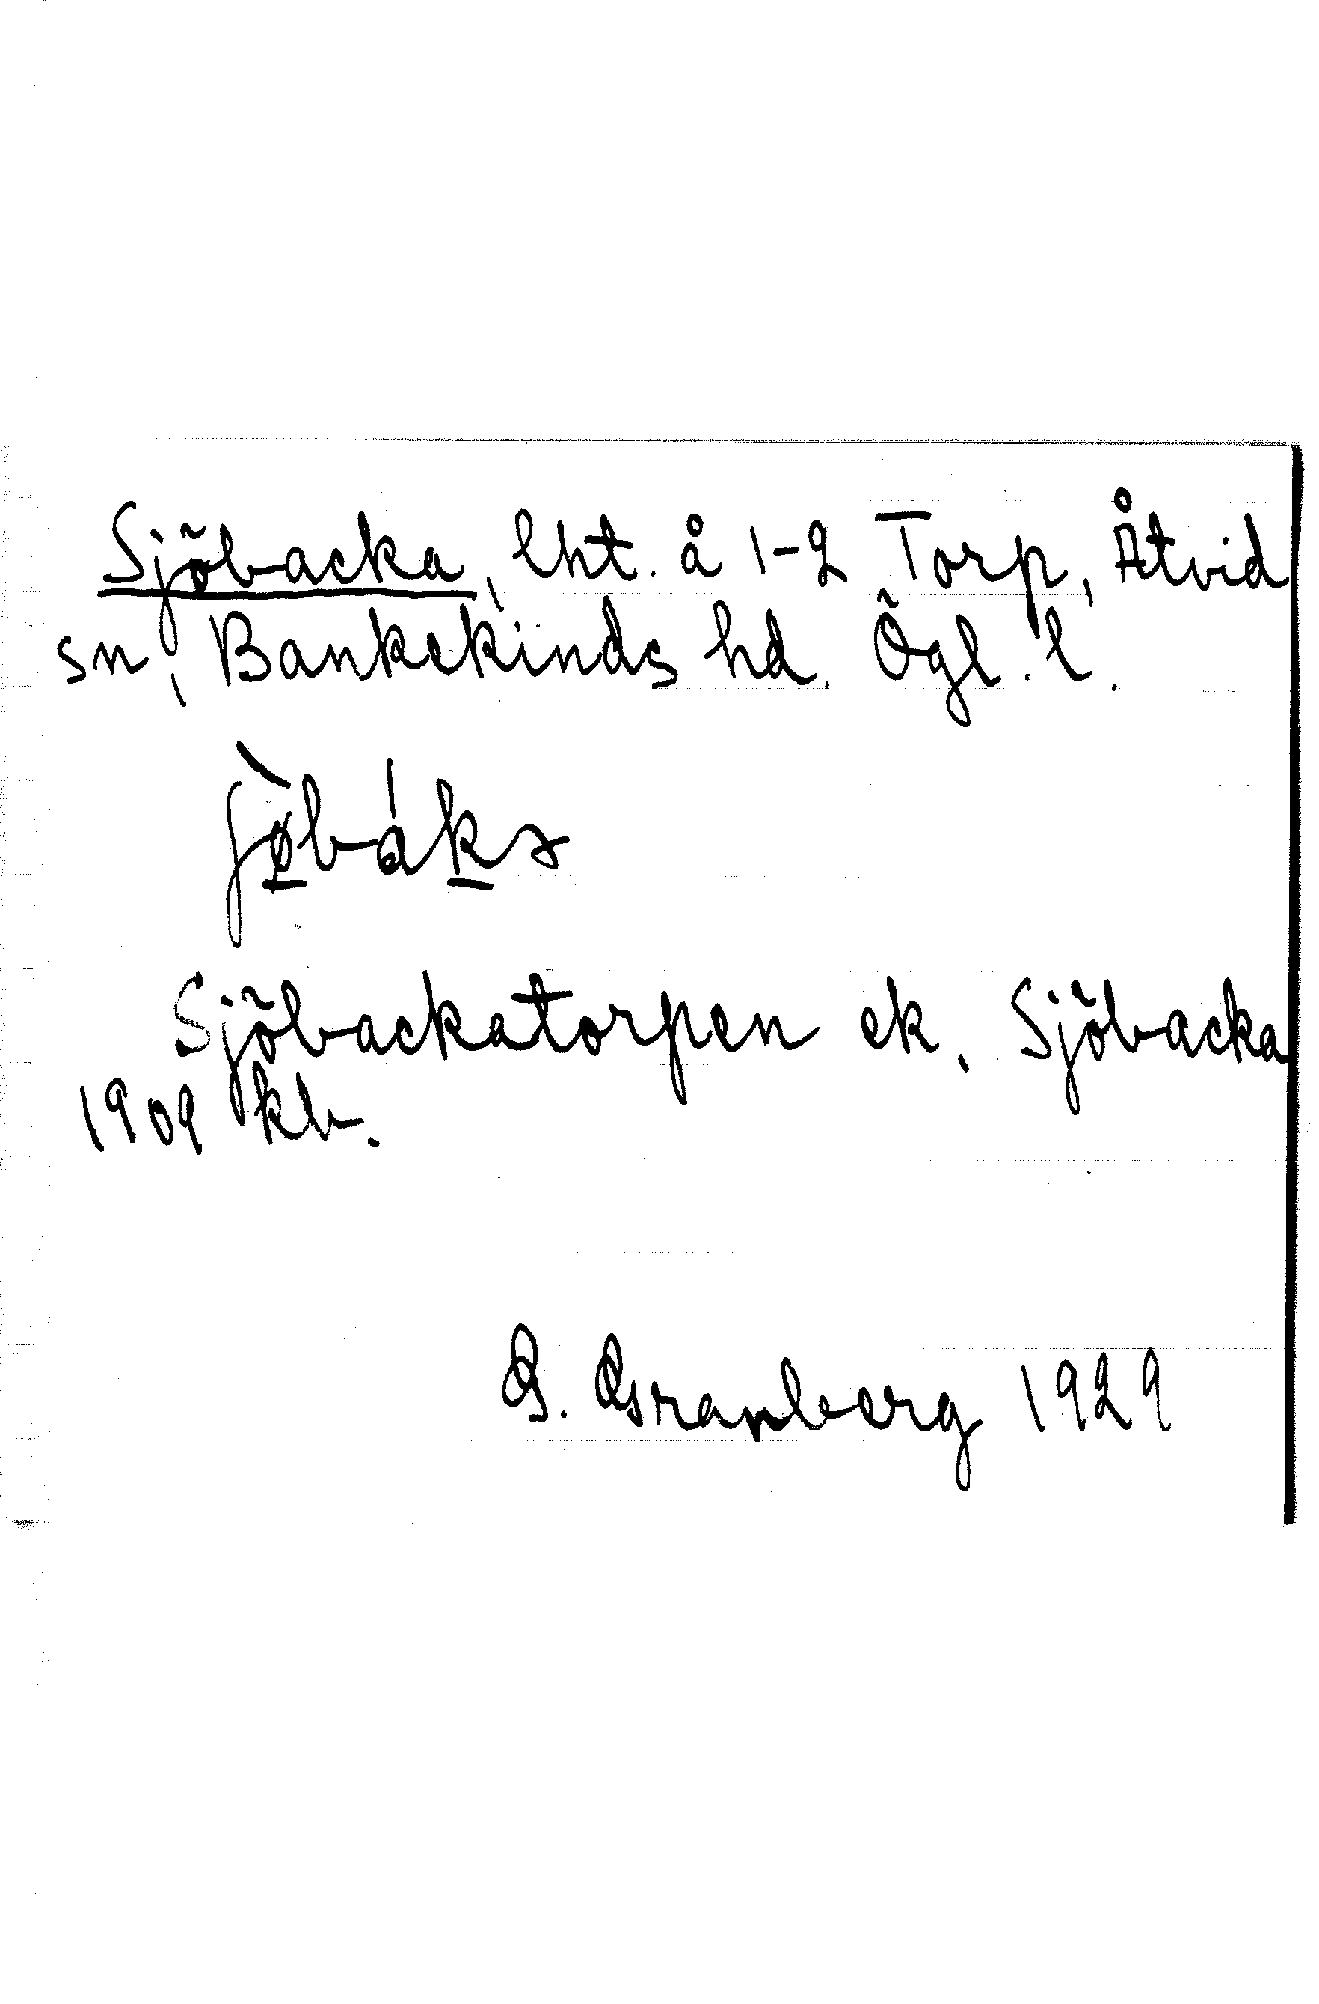 Sjöbacka, lht. å 1-2 Torp, Åtvid
sn, Bankekinds hd. Ögl. l.
Sjöbackatorpen ek. Sjöbacka
1909 kb.
G. Granberg 1929